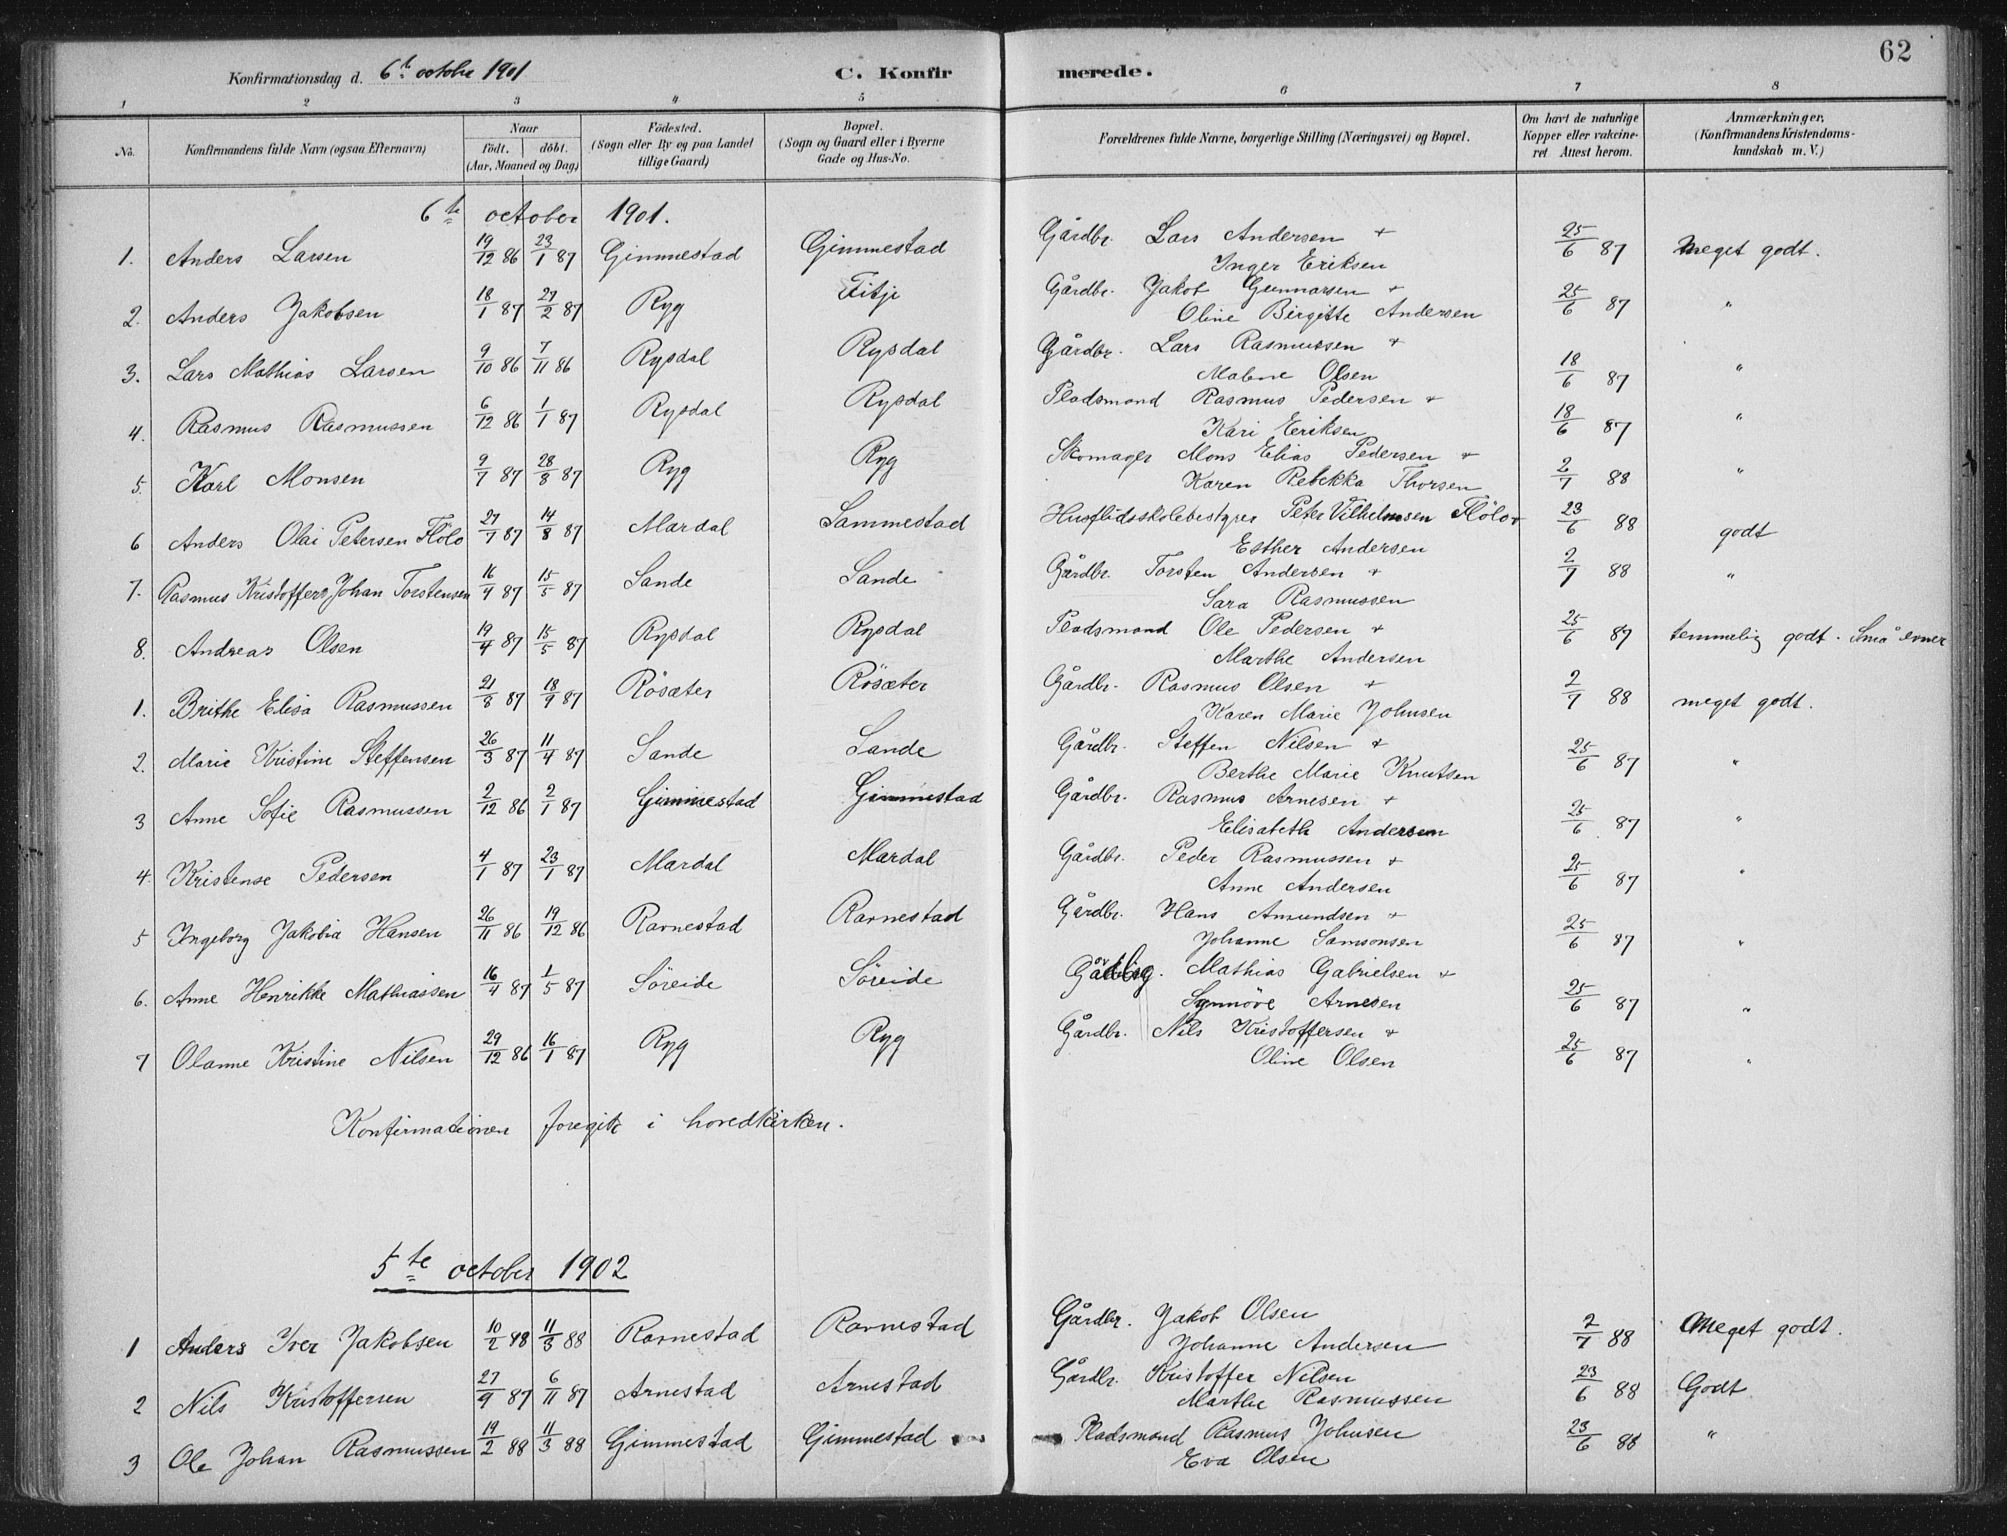 62
Konfirmationsdag d. 6te octobr 1901 C. Konfirmerede.
1 2 3 4 5 6 7 8
No. Konfirmandens fulde Navn (ogsaa Efternavn) Naar født. døbt. (Aar, Maaned og Dag) Fødested. (Sogn eller By og paa Landet tillige Gaard) Bopæl. (Sogn og Gaard eller i Byerne Gade og Hus-No. Forældrenes fulde Navne, borgerlige Stilling (Næringsvei) og Bopæl. Om havt de naturlige Kopper eller vakcineret Attest herom. Anmærkninger, (Konfirmandens Kristendomskundskab m. V.)
6te october 1901.
1. Anders Larsen 19/12 86 23/1 87 Gimmestad Gimmestad Gårdbr. Lars Andersen + Inger Eriksen 25/6 87 Meget godt.
2. Anders Jakobsen 18/1 87 27/2 87 Ryg Fitje Gårdbr. Jakob Gunnarsen + Oline Birgitte Andersen 25/6 87 "
3. Lars Mathias Larsen 9/10 86 7/11 86 Rysdal Rysdal Gårdbr. Lars Rasmussen + Malene Olsen 18/6 87 "
4. Rasmus Rasmussen 6/12 86 1/1 87 Rysdal Rysdal Pladsmand Rasmus Pedersen + Kari Eriksen 18/6 87 "
5. Karl Monsen 9/7 87 28/8 87 Ryg Ryg Skomager Mons Elias Pedersen + Karen Rebekka Thorsen 2/7 88 "
6 Anders Olai Petersen Flölo 27/7 87 14/8 87 Mardal Sammestad Husflidsskolebestyrer Peter Vilhelmsen Flölo + Esther Andersen 23/6 88 godt
7. Rasmus Kristoffers Johan Torstensen 16/4 87 15/5 87 Sande Sande Gårdbr. Torsten Andersen + Sara Rasmussen 2/7 88 "
8. Andreas Olsen 19/4 87 15/5 87 Rysdal Rysdal Pladsmand Ole Pedersen + Marthe Andersen 25/6 87 temmelig godt. Små evner
1. Brithe Elisa Rasmussen 21/8 87 18/9 87 Rösæter Rösæter Gårdbr. Rasmus Olsen + Karen Marie Johnsen 2/7 88 meget godt.
2. Marie Kristine Steffensen 26/3 87 11/4 87 Sande Sande Gårdbr. Steffen Nilsen + Berthe Marie Knutsen 25/6 87 "
3 Anne Sofie Rasmussen 2/12 86 2/1 87 Gimmestad Gimmestad Gårdbr. Rasmus Arnesen + Elisabeth Andersen 25/6 87 "
4. Kristense Pedersen 4/1 87 23/1 87 Mardal Mardal Gårdbr. Peder Rasmussen + Anne Andersen 25/6 87 "
5 Ingeborg Jakobia Hansen 26/11 86 19/12 86 Ravnestad Ravnestad Gårdbr. Hans Amundsen + Johanne Samsonsen 25/6 87 "
6. Anne Henrikke Mathiassen 16/4 87 1/5 87 Söreide Söreide Mathias Gabrielsen + Synnöve Arnesen 25/6 87 "
7 Olanne Kristine Nilsen 29/12 86 16/1 87 Ryg Ryg Gårdbr. Nils Kristoffersen + Oline Olsen 25/6 87 "
Konfirmationen foregik i hovedkirken.
5te october 1902
1 Anders Iver Jakobsen 10/2 88 11/3 88 Ravnestad Ravnestad Gårdbr. Jakob Olsen Johanne Andersen 2/7 88 Meget godt.
2 Nils Kristoffersen 27/9 87 6/11 87 Arnestad Arnestad Gårdbr. Kristoffer Nilsen Marthe Rasmussen 23/6 88 Godt
3 Ole Johan Rasmussen 19/2 88 11/3 88 Gimmestad Gimmestad Pladsmand Rasmus Johnsen Eva Olsen 23/6 88 "